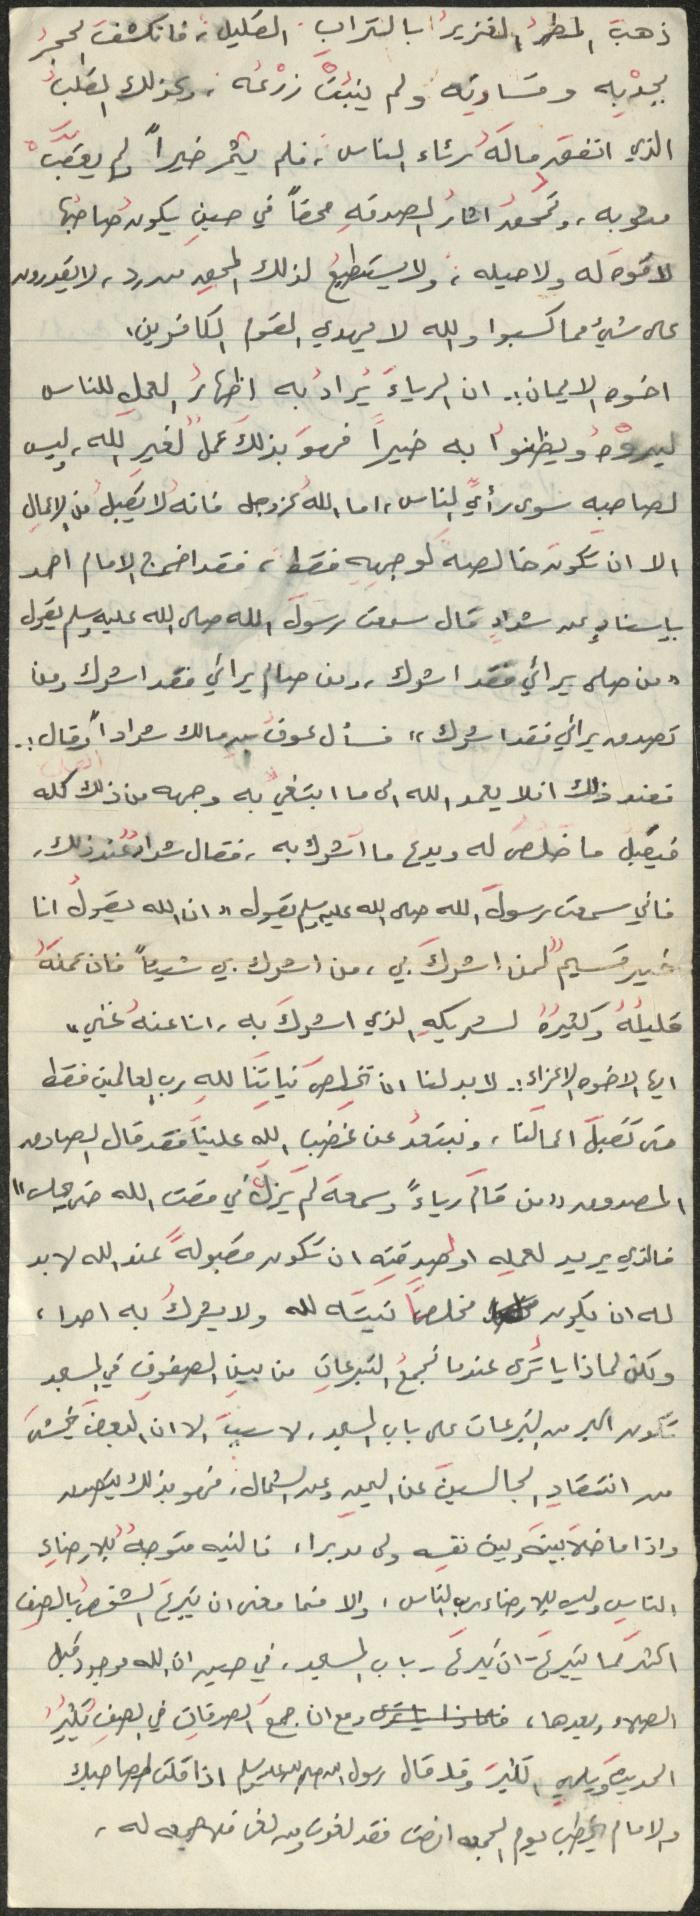 ذهبَ المطرُ الغزيرُ بالترابِ القليلِ، فانكشفَ الحجرُ
بجدْبِه وقساوتِه ولم ينبُتْ زرْعُه، وكذلك القلبُ
الذي انفقَ مالَهُ رئاء الناس، فلم يثمر خيراً ولم يعقبْه
مثوبه، وتُمحقُ اثارُ الصدقهِ محقاً في حينِ يكونُ صاحبُها
لا قوةَ له ولا حيله، ولا يستطيعُ لذلك المحقِ من رد، لا يقدرون
على شيءٍ مما كسبوا والله لا يهدي القوم الكافرين.
اخوه الايمان:. ان الرياءَ يُرادُ به اظهارُ العملِ للناس
ليروْهُ ويظنوا به خيراً فهو بذلكَ عملٌ لغيرِ اللهِ، ليس
لصاحبه سوى رأيِ الناس، اما اللهُ عز وجل فانهُ لا يقبلُ من الاعمالِ
الا ان تكونَ خالصهً لوجهِهِ فقط، فقد اخرج الامام احمد
باسنادِ عن شدادٍ قال سمعت رسولَ الله صلى الله عليه وسلم يقول
"من صلى يرائي فقد اشرك، ومن صام يرائي فقد اشرك ومن
تصدق يرائي فقد اشرك" فسأل عوفُ بن مالك شداداً وقال:.
فعند ذلك افلا يعمد الله الى ما ابتغي به وجهه من ذلك العمل كله
فيقبل ما خلصَ له ويدع ما اشرك به، فقال شدادٌ عند ذلك،
فاني سمعت رسولَ الله صلى الله عليه وسلم يقول "ان الله يقولُ انا
خير قسيمٍ لمن اشركَ بي، من اشرك بي شيئاً فان عملَهُ
قليلهُ وكثيرهُ لشريكهِ الذي اشركَ به، انا عنهُ غني"
ايها الاخوه الاعزاء:. لا بد لنا ان تخلصَ نياتنَا للهِ ربِ العالمين فقط
حتى تقبلَ اعمالَنا، ونبتعدُ عن غضبِ اللهِ علينا فقد قال الصادق
المصدوق "من قامَ رياءً وسمعة لم يزلْ في مقت الله حتى يجلس"
فالذي يريد لعملِه او لصدقتِه ان تكون مقبولهً عند الله لا بد
له ان يكون مخلصاً نيتَه لله ولا يشركُ به احدا،
ولكن لماذا يا تُرى عندما تُجمعُ التبرعاتِ من بينِ الصفوفِ في المسجد
تكون اكبر من التبرعات على باب المسجد، لا سببَ الا ان البعضَ يخشى
من انتقادِ الجالسينَ عن اليمين وعن الشمال، فهو بذلك يتصدق
واذا ما خلا بينَه وبين نفسِه ولى مدبرا، فالنيه متوجهٌ للارضاءِ
الناسِ وليس للارضاء ربِ الناس، والا فما معنى ان يتبرعَ الشخصُ بالصفِ
اكثرَ مما يتبرعَ - ان تبرعَ - باب المسجد، في حين ان الله موجود قبل
الصلاه وبعدها، فلماذا يا ترى ومع ان جمعَ الصدقاتِ في الصفِ تثيرُ
الحديثَ ويلهي الكثيرَ وقد قال رسول الله صلى الله عليه وسلم اذا قلت لصاحبك
والامام يخطب يوم الجمعه انصت فقد لغوت ومن لغى فلا جمعه له،